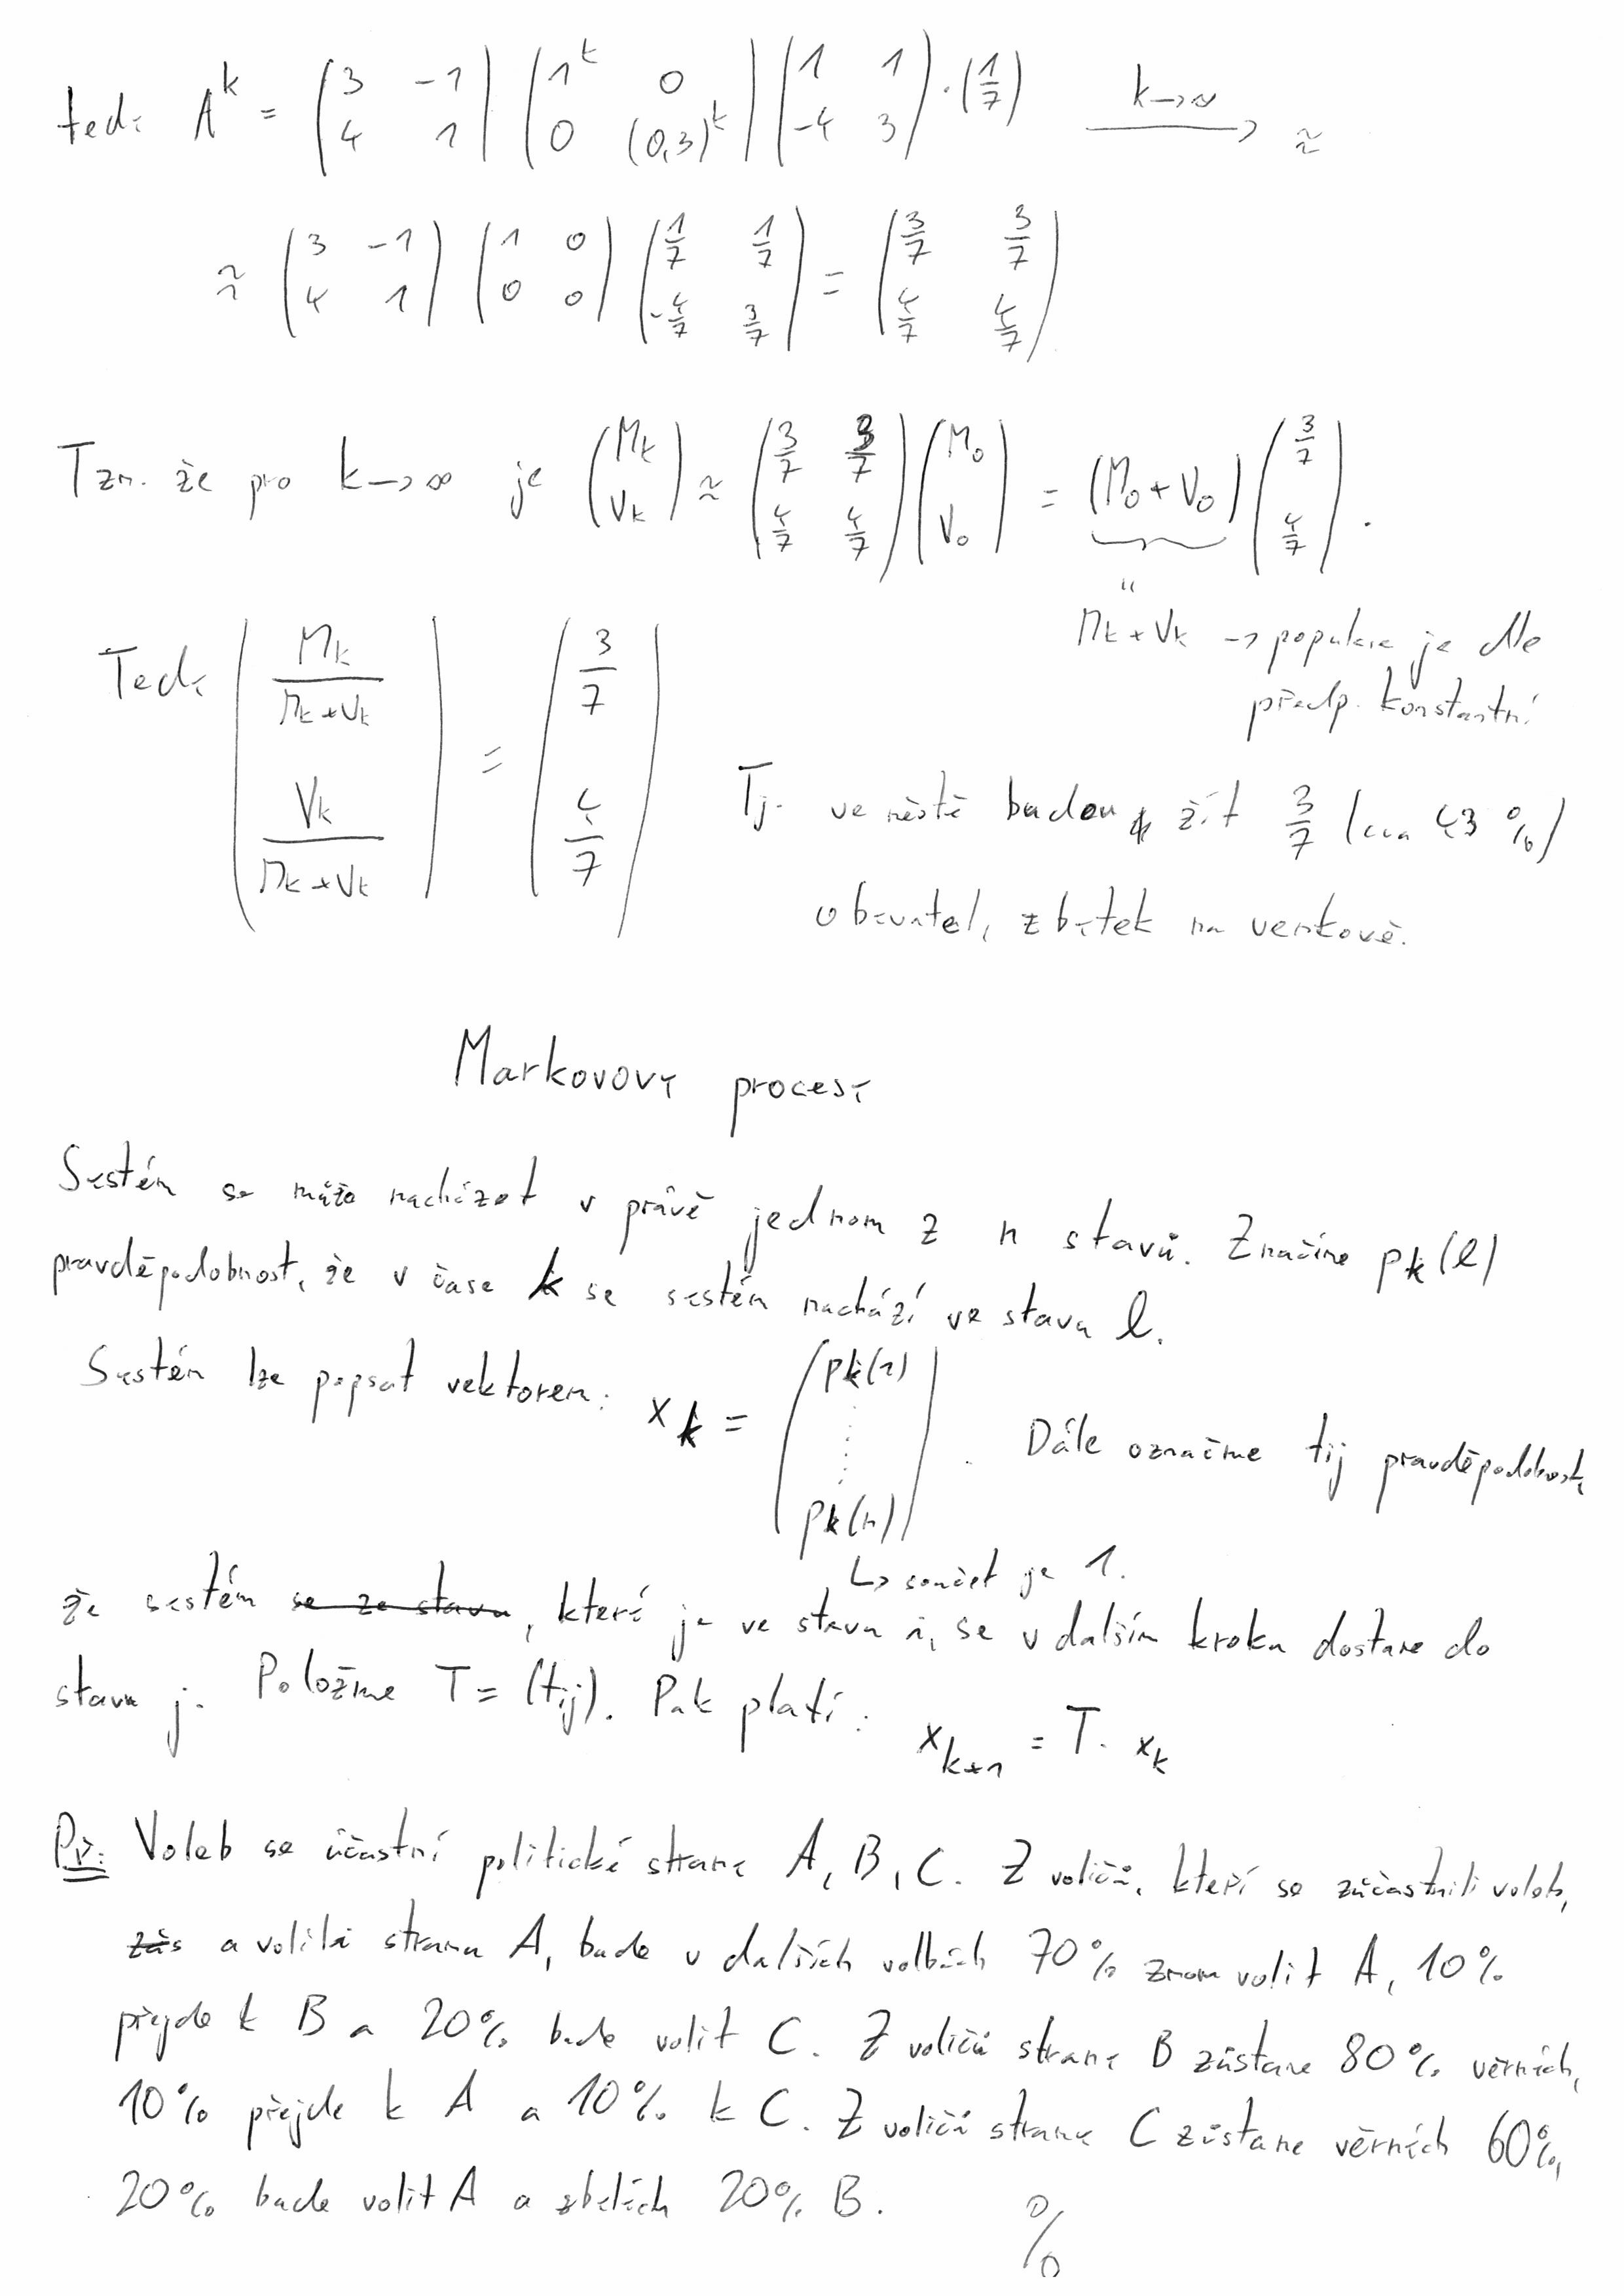 tedy A^k = (3 -1; 4 1) (1^k 0; 0 (0,3)^k) (1 1; -4 3) · (1/7) k→∞ ⟶ ≈
≈ (3 -1; 4 1) (1 0; 0 0) (1/7 1/7; -4/7 3/7) = (3/7 3/7; 4/7 4/7)
Tzn. že pro k→∞ je (M_k; V_k) ≈ (3/7 3/7; 4/7 4/7) (M_0; V_0) = (M_0 + V_0) (3/7; 4/7).
"
M_k + V_k → populace je dle
předp. konstantní
Tedy (M_k/(M_k+V_k); V_k/(M_k+V_k)) = (3/7; 4/7)
Tj. ve městě budou žít 3/7 (cca 43 %)
obyvatel, zbytek na venkově.
Markovovy procesy
Systém se může nacházet v právě jednom z n stavů. Značíme p_k(l)
pravděpodobnost, že v čase k se systém nachází ve stavu l.
Systém lze popsat vektorem: x_k = (p_k(1); ⋮; p_k(n)). Dále označme t_ij pravděpodobnost,
↳ součet je 1.
že systém se ze stavu, který je ve stavu i, se v dalším kroku dostane do
stavu j. Položme T = (t_ij). Pak platí: x_{k+1} = T · x_k
Př: Voleb se účastní politické strany A, B, C. Z voličů, kteří se zúčastnili voleb,
zús a volili stranu A, bude v dalších volbách 70% znovu volit A, 10%
přejde k B a 20% bude volit C. Z voličů strany B zůstane 80% věrných,
10% přejde k A a 10% k C. Z voličů strany C zůstane věrných 60%,
20% bude volit A a zbylých 20% B.
%